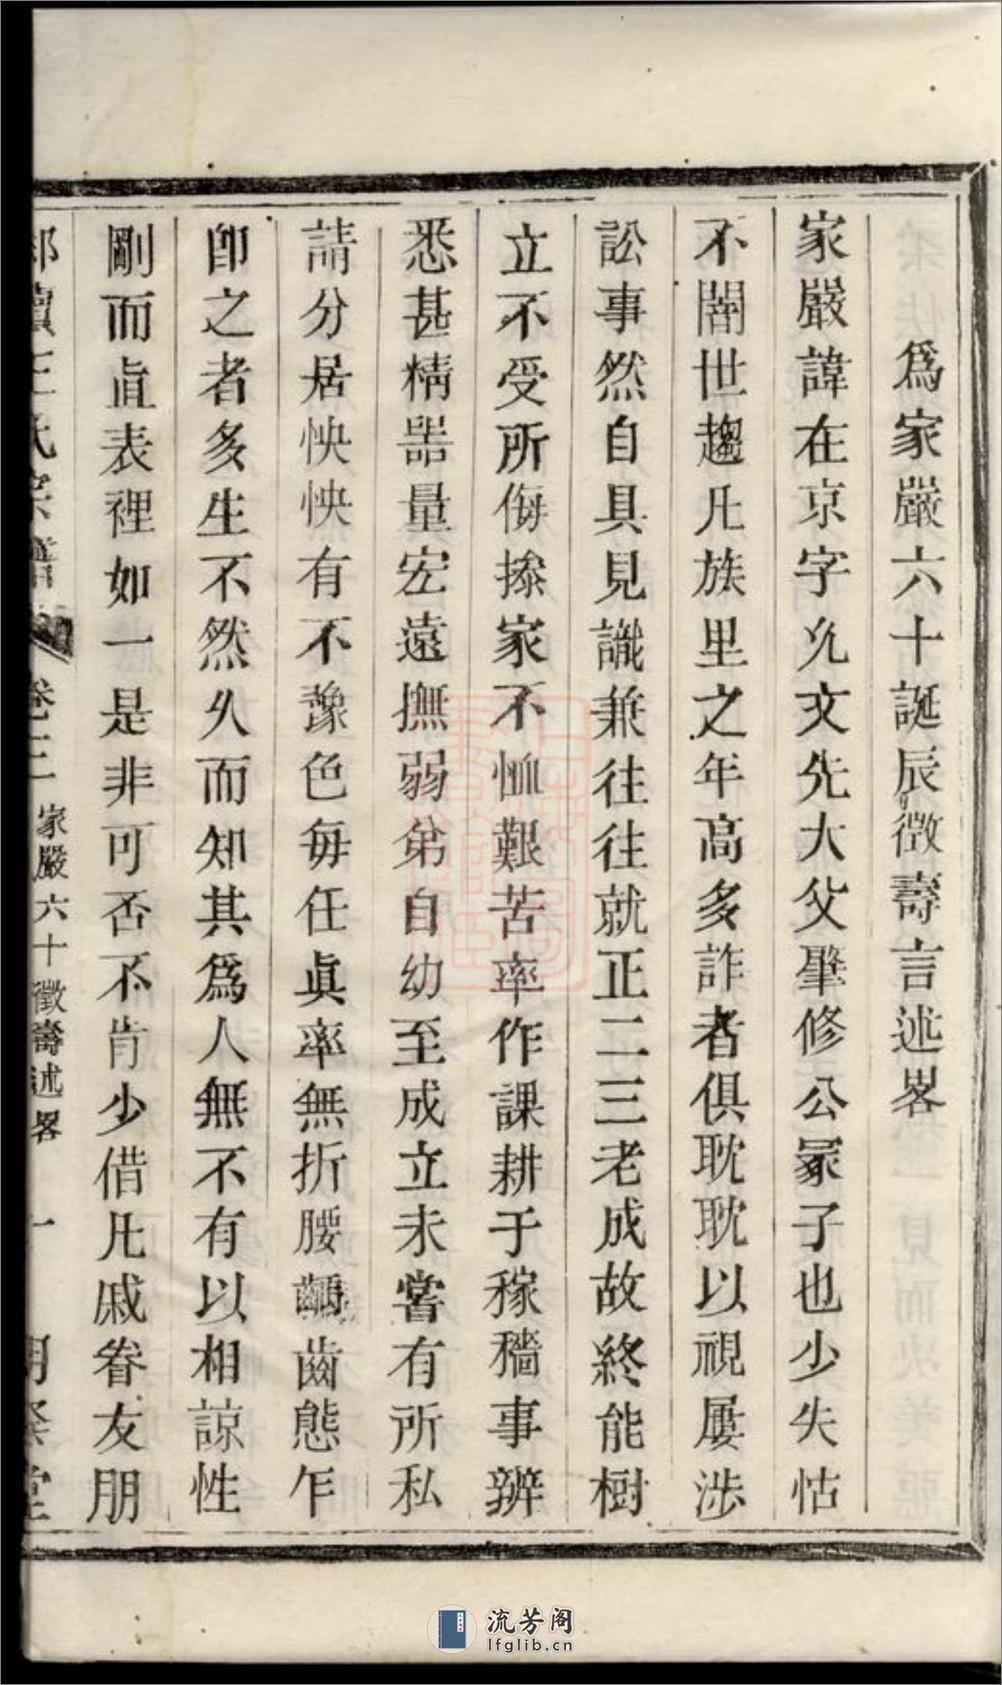 爲家嚴六十誕辰徵壽言述畧
家嚴諱在京字允文先大父肇修公冡子也少失怙
不閽世趨凡族里之年高多詐者俱耽耽以視屢涉
訟事然自具見識兼往往就正二三老成故終能樹
立不受所侮操家不恤艱苦率作課耕于稼穡事辨
悉甚精噐量宏遠撫弱弟自幼至成立未嘗有所私
請分居怏怏有不豫色每任眞率無折腰齲齒態乍
卽之者多生不然久而知其爲人無不有以相諒性
剛而直表裡如一是非可否不肯少借凡戚眷友朋
王氏宗譜 卷二 家嚴六十徵壽述畧 一 堂
流芳阁
lfglib.cn